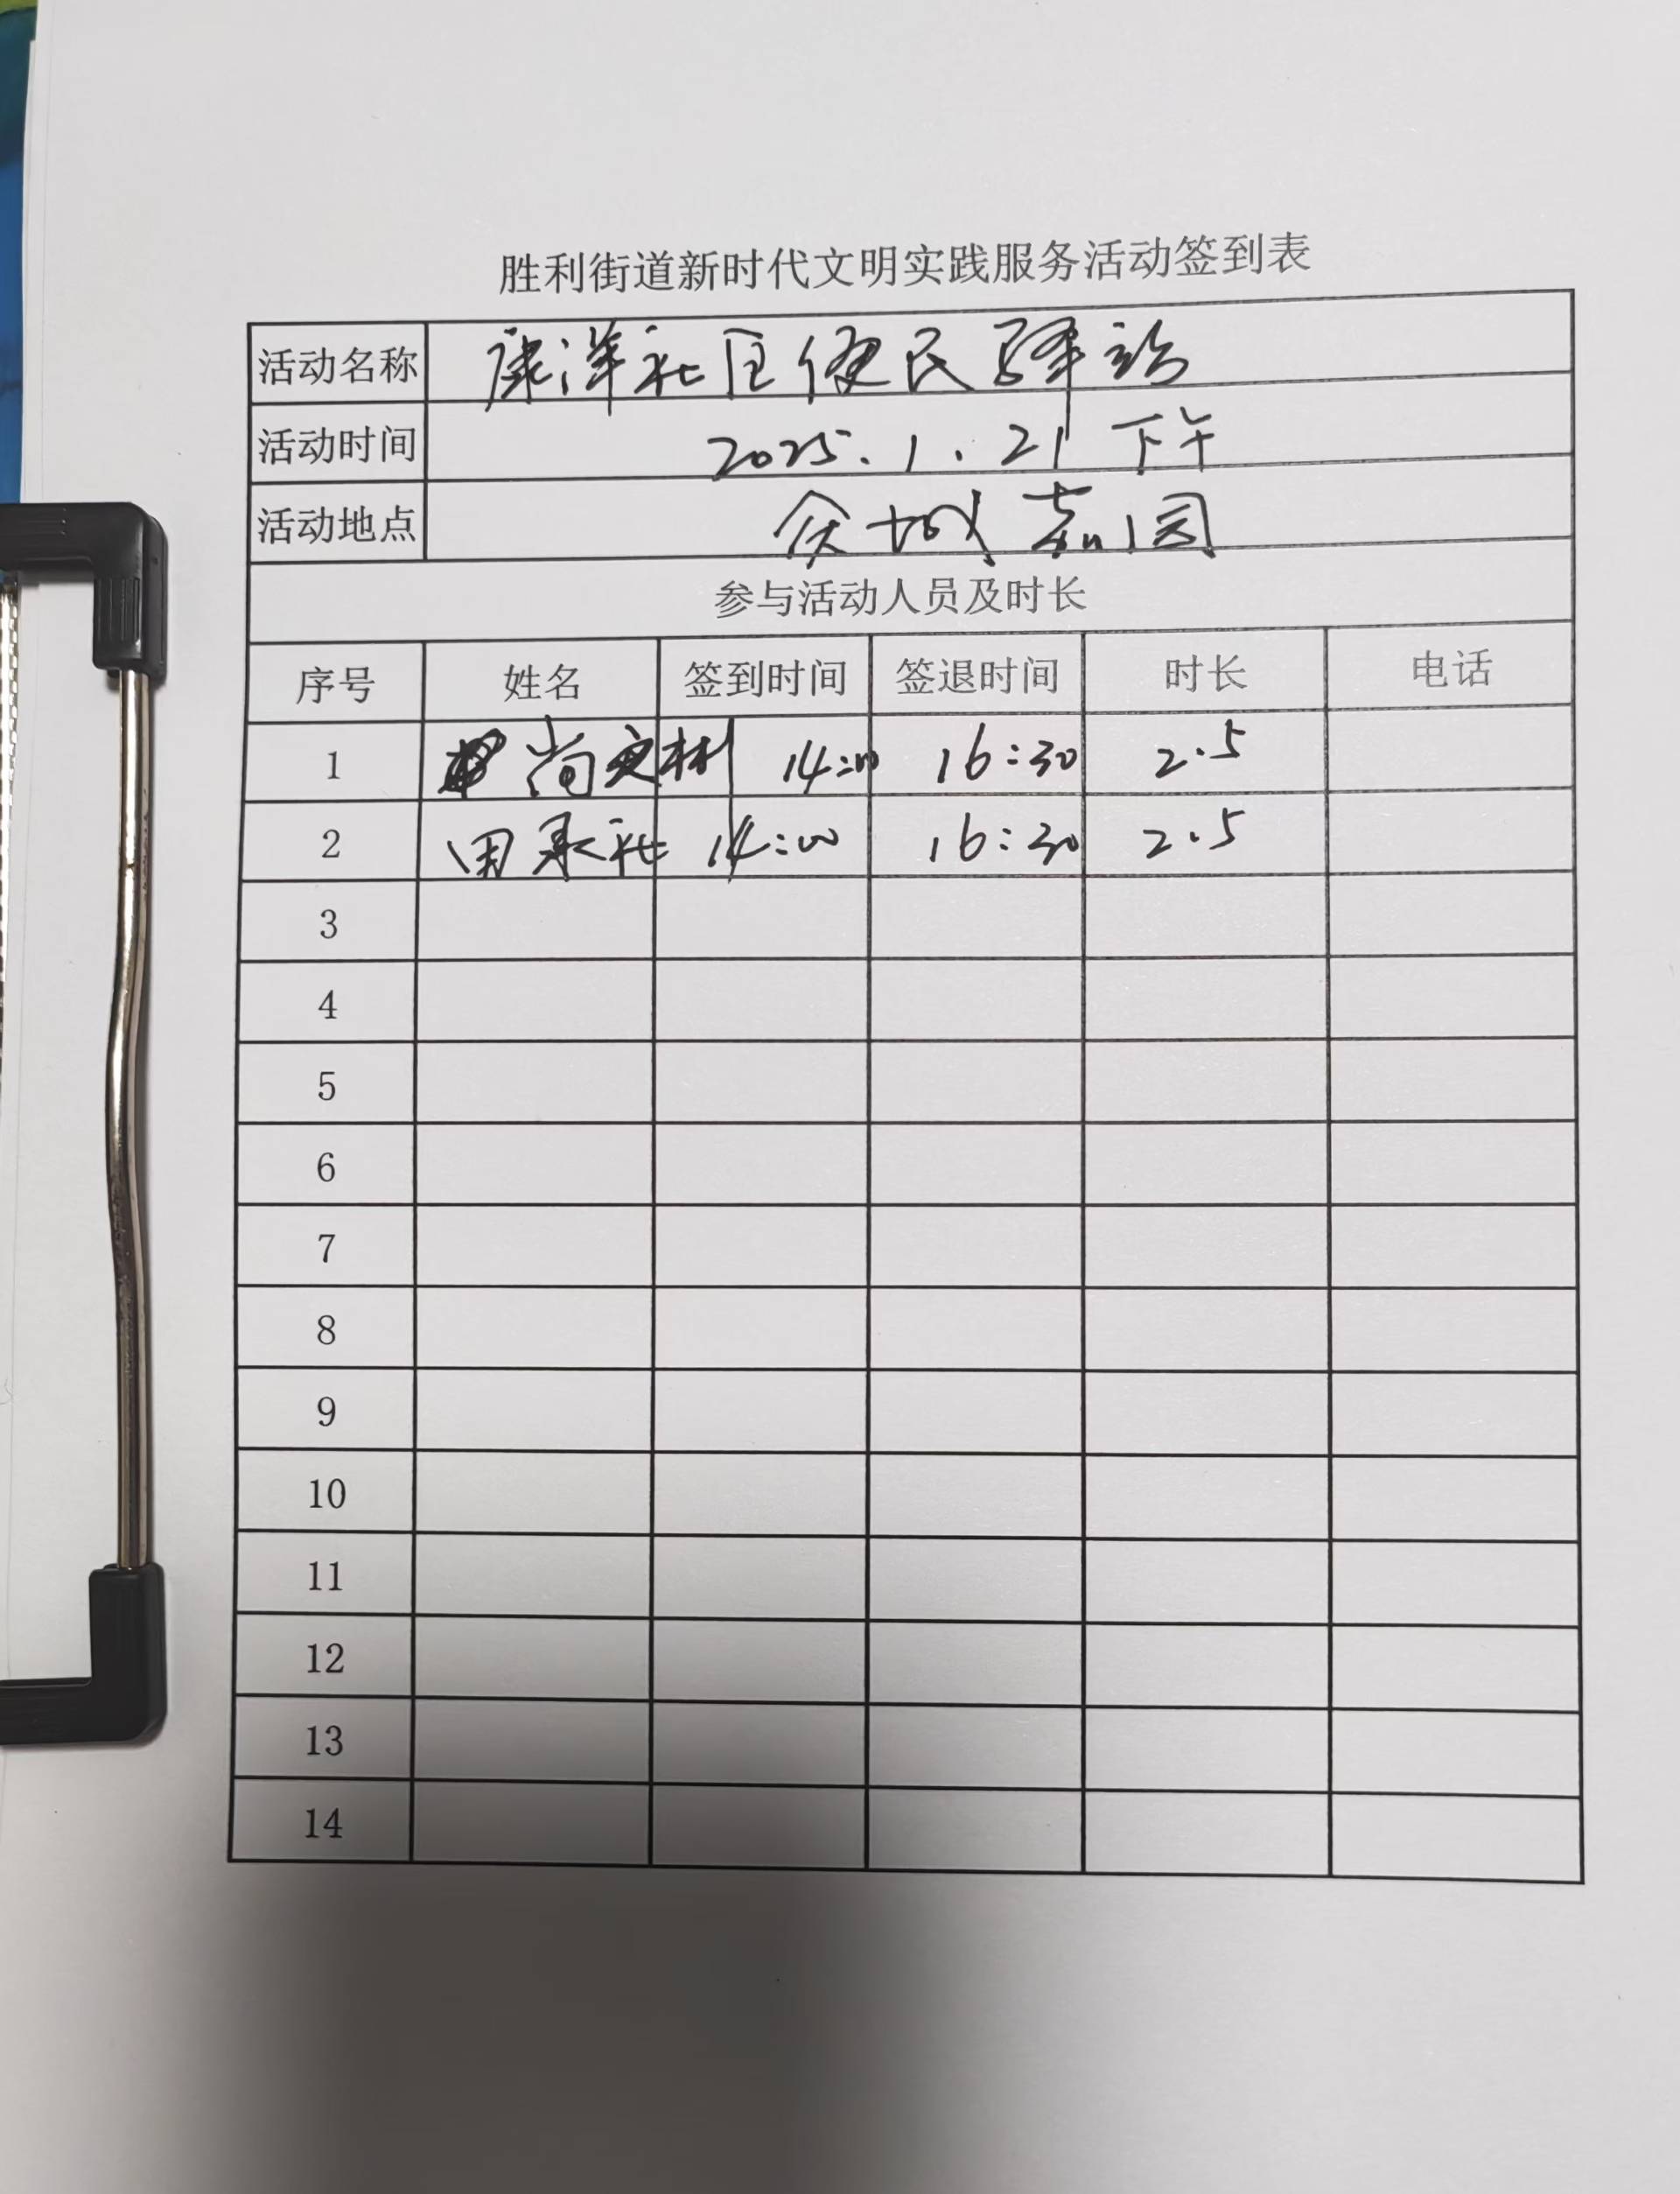 胜利街道新时代文明实践服务活动签到表
活动名称 康洋社区便民驿站
活动时间 2025.1.21 下午
活动地点 众城嘉园
参与活动人员及时长
序号 姓名 签到时间 签退时间 时长 电话
1 尚文彬 14:00 16:30 2.5
2 田承社 14:00 16:30 2.5
3
4
5
6
7
8
9
10
11
12
13
14